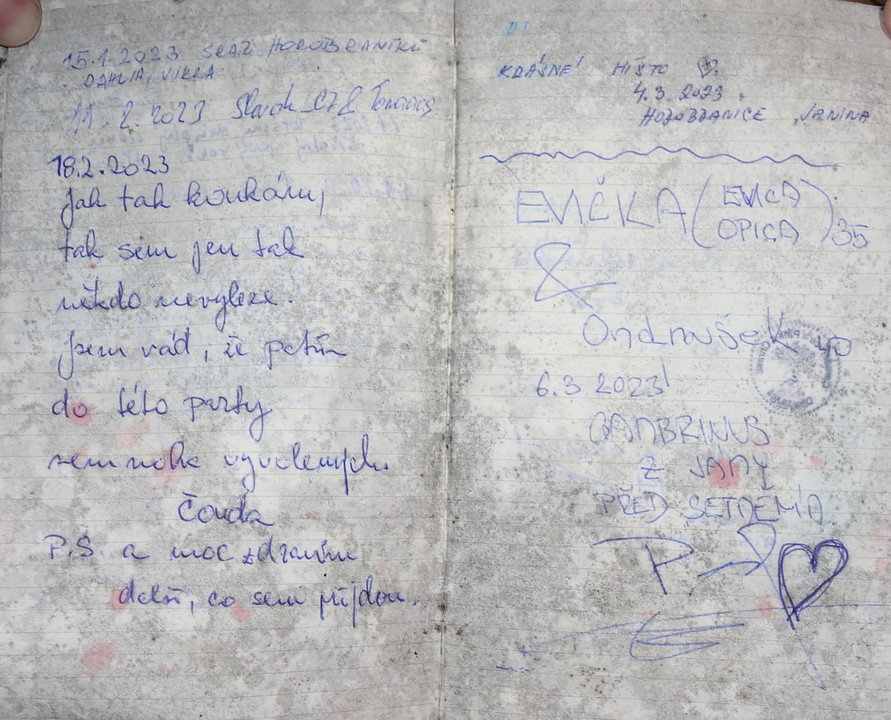 15.1.2023 SRAZ HOROBRANÍKŮ
DAHLIA, VIKRA
11.2.2023 Slavok_CZ &
18.2.2023
jak tak koukám,
tak sem jen tak
někdo nevyleze.
Jsem rád, že patřím
do této party
nemnoha vyvolených.
Čouda
P.S. a moc zdravím
další, co sem přijdou.
KRÁSNÉ MÍSTO ♡.
4.3.2023
JANINA
EVIČKA (EVICA OPICA) 35
&
Ondroušek 40
6.3 2023
GAMBRINUS
Z JÁMY
PŘED
P